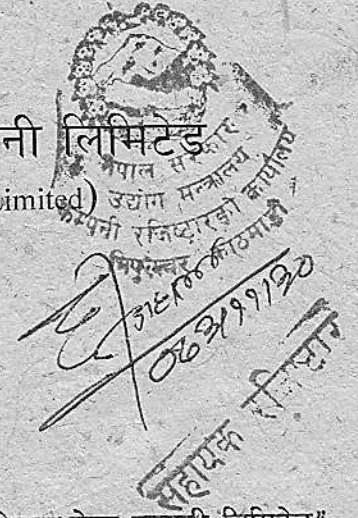 नी लिमिटेड
imited)
नेपाल सरकार
उद्योग मन्त्रालय
कम्पनी रजिष्टारको कार्यालय
त्रिपुरेश्वर काठमाडौं
०६३/११/२०
सहायक रजिष्टार
लिमिटेड"